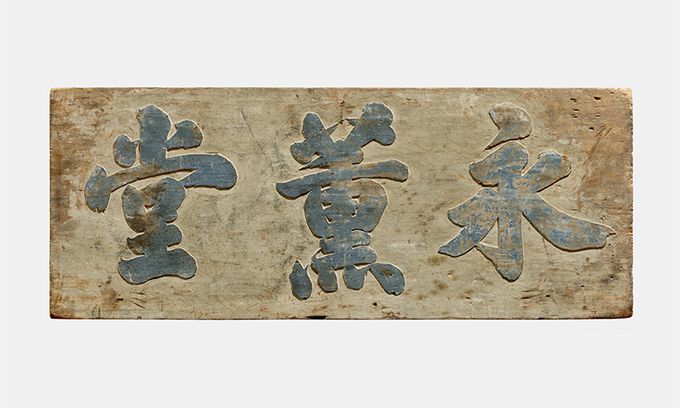 永薰堂